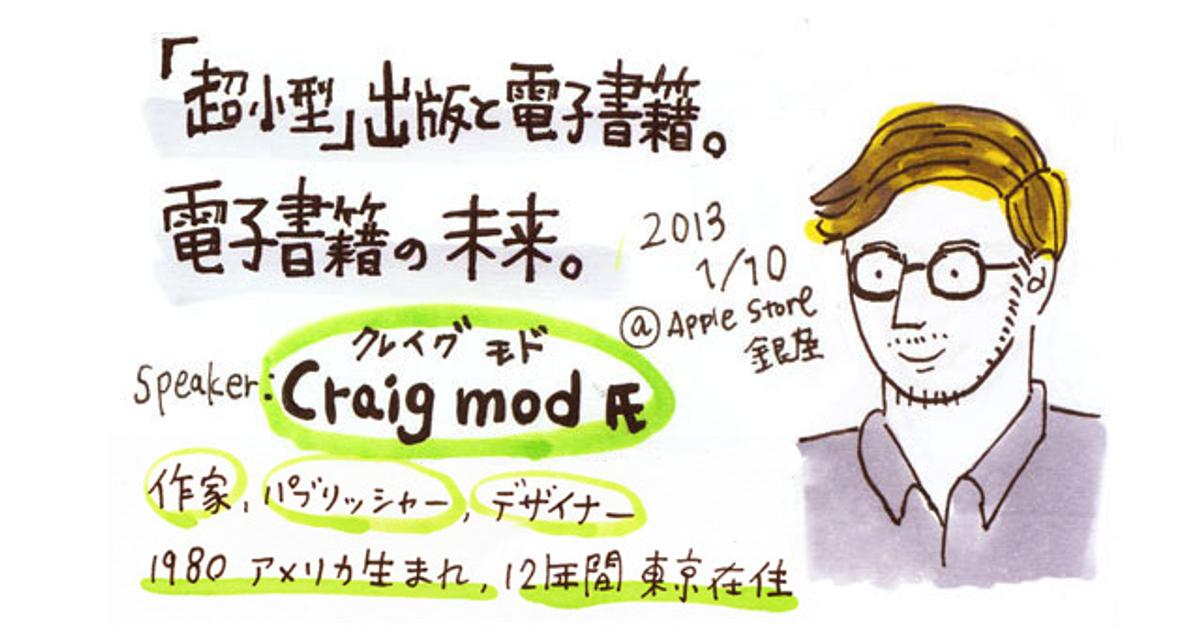 「超小型」出版と電子書籍。
電子書籍の未来。
2013
1/10
@ Apple Store
銀座
クレイグ モド
Speaker: Craig mod 氏
作家, パブリッシャー, デザイナー
1980 アメリカ生まれ, 12年間 東京在住